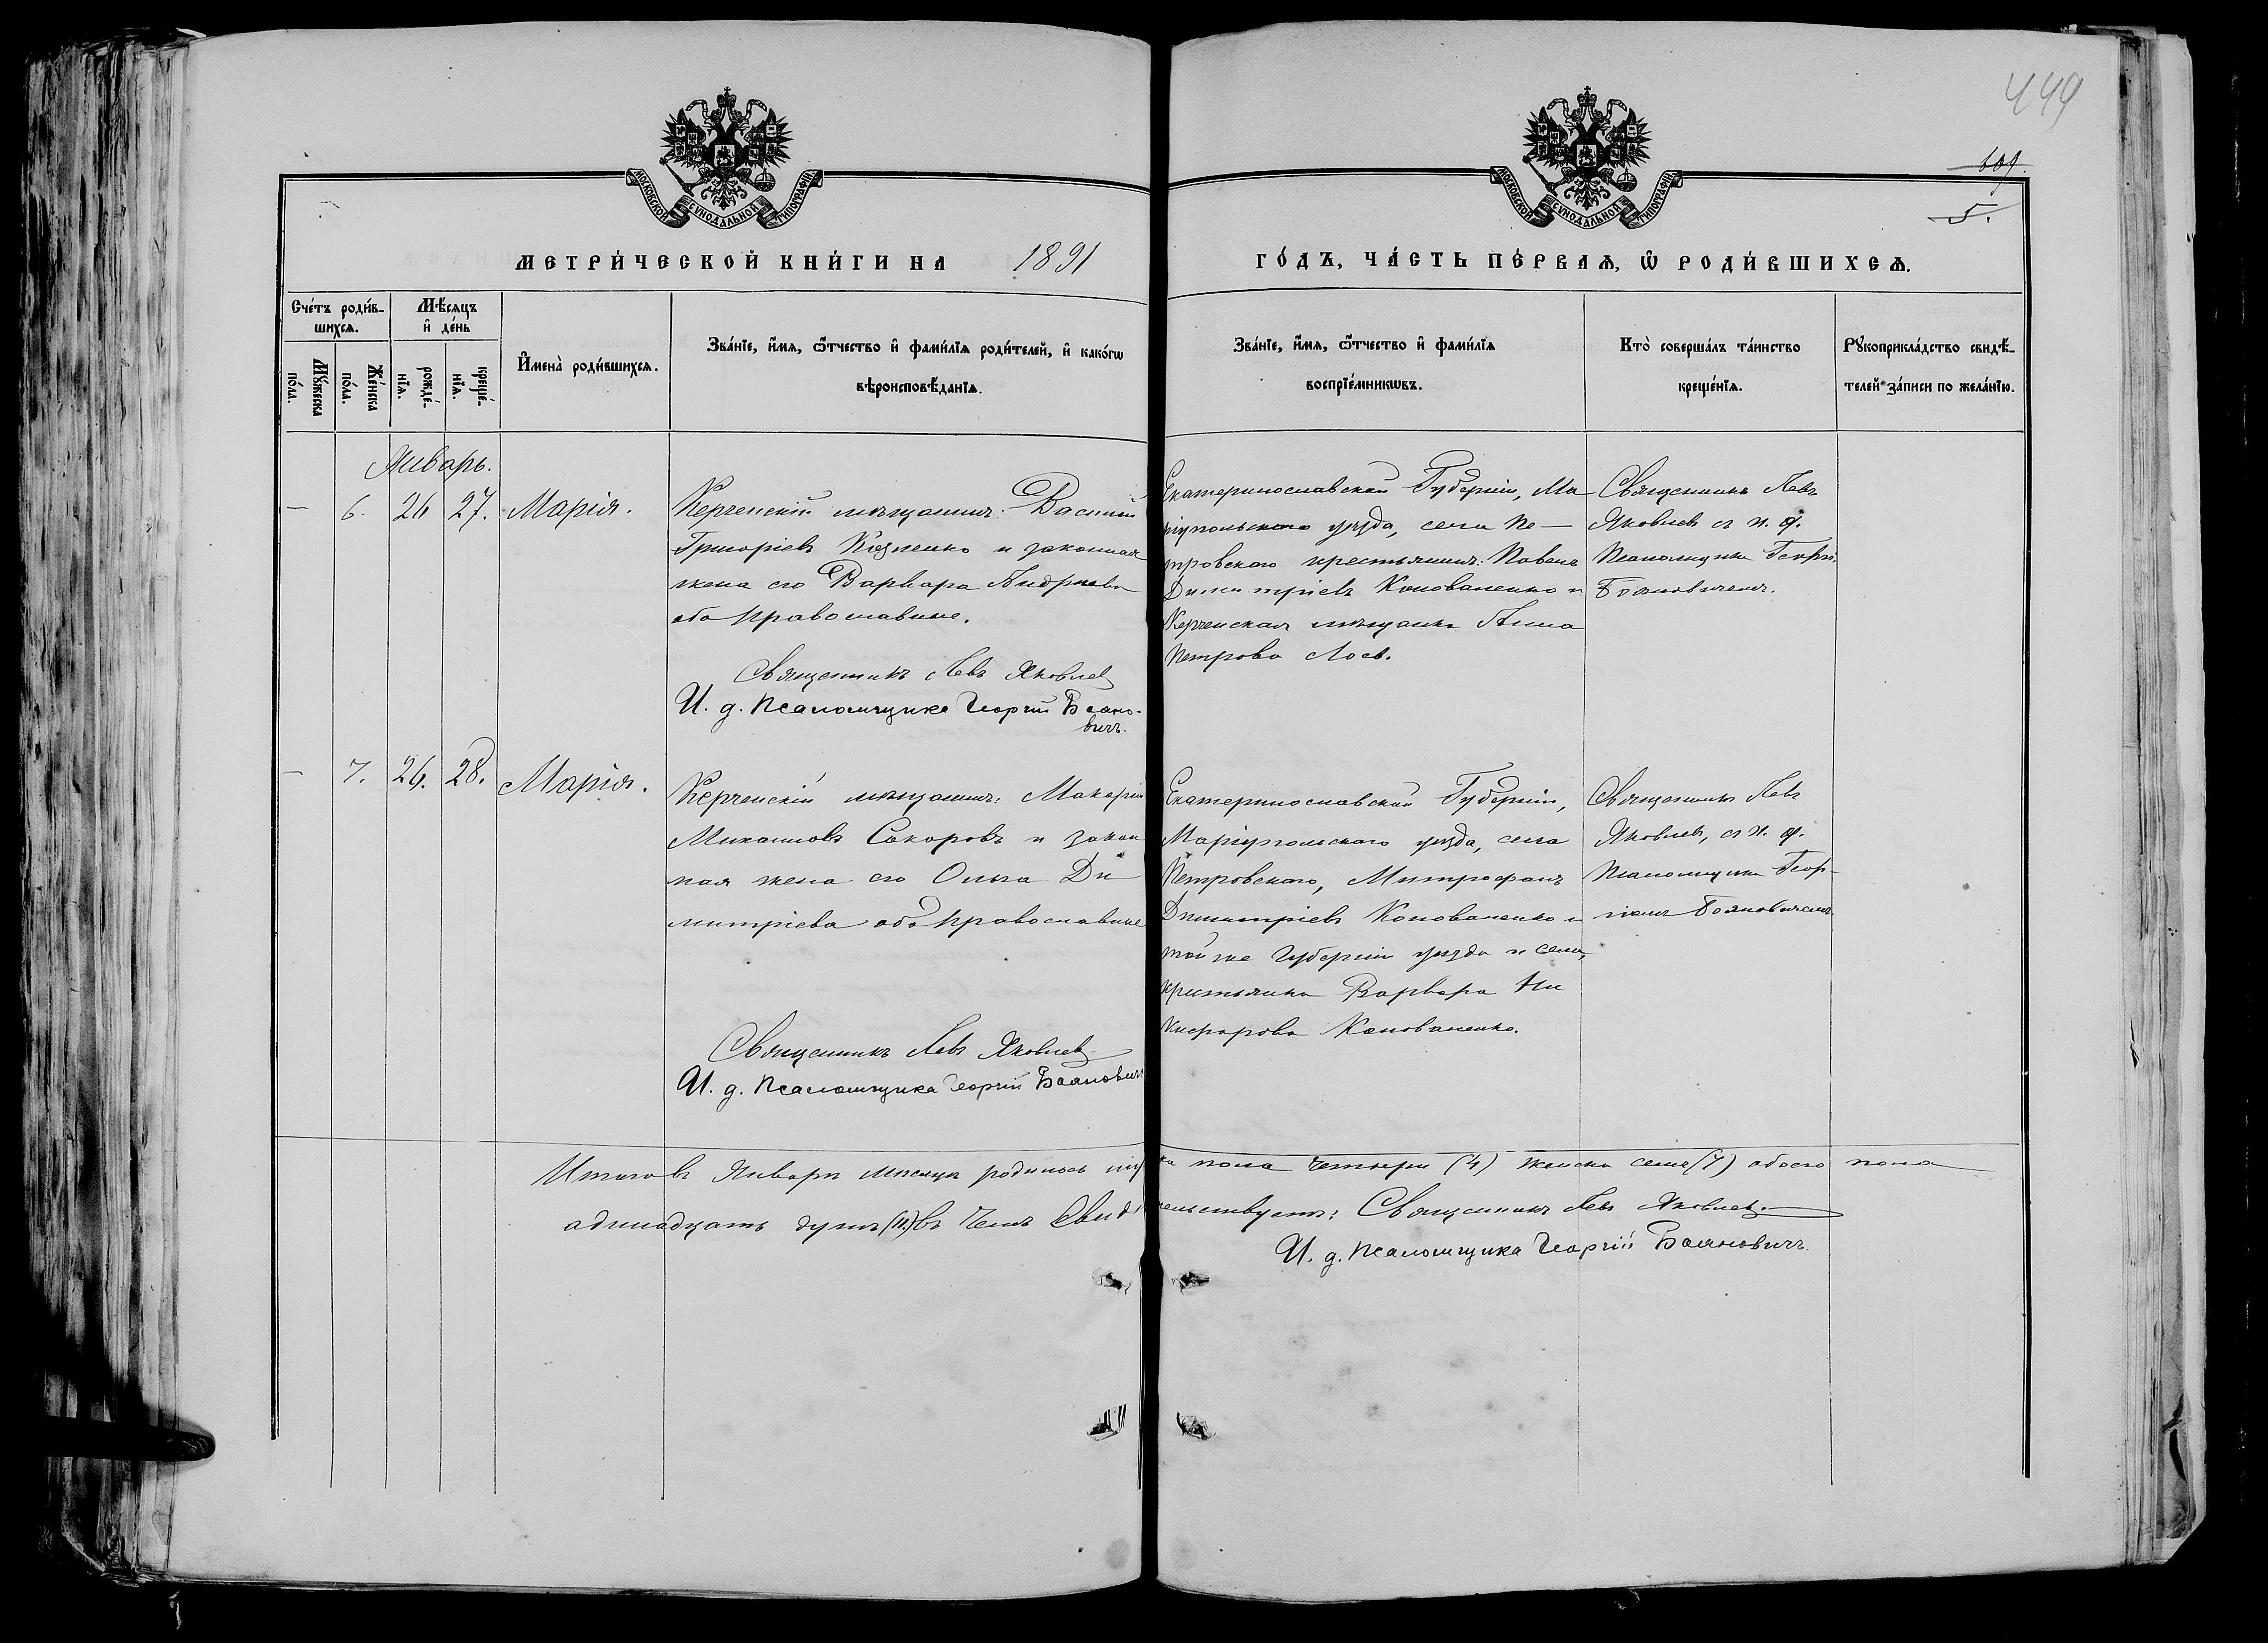 449
609.
5.
МОСКОВСКОЙ СУНОДАЛЬНОЙ ТИПОГРАФІИ
МОСКОВСКОЙ СУНОДАЛЬНОЙ ТИПОГРАФІИ
МЕТРИ́ЧЕСКОЙ КНИ́ГИ НА 1891
ГО́ДЪ, ЧА́СТЬ ПЕ́РВАѦ, Ѽ РОДИ́ВШИХСѦ.
Сче́тъ роди́в-
шихсѧ.
Мꙋ́жеска
по́ла.
Же́нска
по́ла.
Мѣ́сѧцъ
и҆ де́нь
рожде́-
нїѧ.
креще́-
нїѧ.
И҆мена̀ роди́вшихсѧ.
Зва́нїе, и҆́мѧ, ѻ҆́тчество и҆ фами́лїѧ роди́телей, и҆ како́гѡ
вѣроисповѣ́данїѧ.
Зва́нїе, и҆́мѧ, ѻ҆́тчество и҆ фами́лїѧ
воспрїе́мникѡвъ.
Кто̀ соверша́лъ та́инство
креще́нїѧ.
Рꙋкоприкла́дство свидѣ́-
телей за́писи по жела́нїю.
Январь.
— 6. 26 27. Марія.
Керченскій мѣщанинъ: Василій
Григоріевъ Козненко и законная
жена его Варвара Андреева
оба православные.
Священникъ Левъ Яковлев
И. д. псаломщика Георгій Баяно-
вичъ.
Екатеринославской Губерніи, Ма
ріупольскаго уѣзда, села Пе—
тровскаго крестьянинъ: Павелъ
Димитріевъ Коноваленко и
Керченская мѣщанка Анна
Петрова Лось.
Священникъ Левъ
Яковлев съ и. д.
Псаломщика Георгі
Бояновичемъ.
— 7. 26. 28. Марія.
Керченскій мѣщанинъ: Макарій
Михаиловъ Сахоровъ и закон
ная жена его Ольга Ди
митріева оба православные
Священникъ Левъ Яковлев
И. д. псаломщика Георгій Баяновичъ
Екатеринославской Губерніи,
Маріупольскаго уѣзда, села
Петровскаго, Митрофанъ
Димитріевъ Коноваленко и
той же Губерніи уѣзда и села,
крестьянка Варвара Ни
кифорова Коноваленко.
Священникъ Левъ
Яковлев, съ и. д.
Псаломщика Геор-
гіемъ Бояновичемъ
Итого въ Январѣ мѣсяцѣ родилось му
ска пола четыре (4) женска семь (7) обоего пола
одинадцать душъ (11.) въ чемъ Свидѣ
тельствуетъ: Священникъ Левъ Яковлев.
И. д. псаломщика Георгій Баяновичъ.